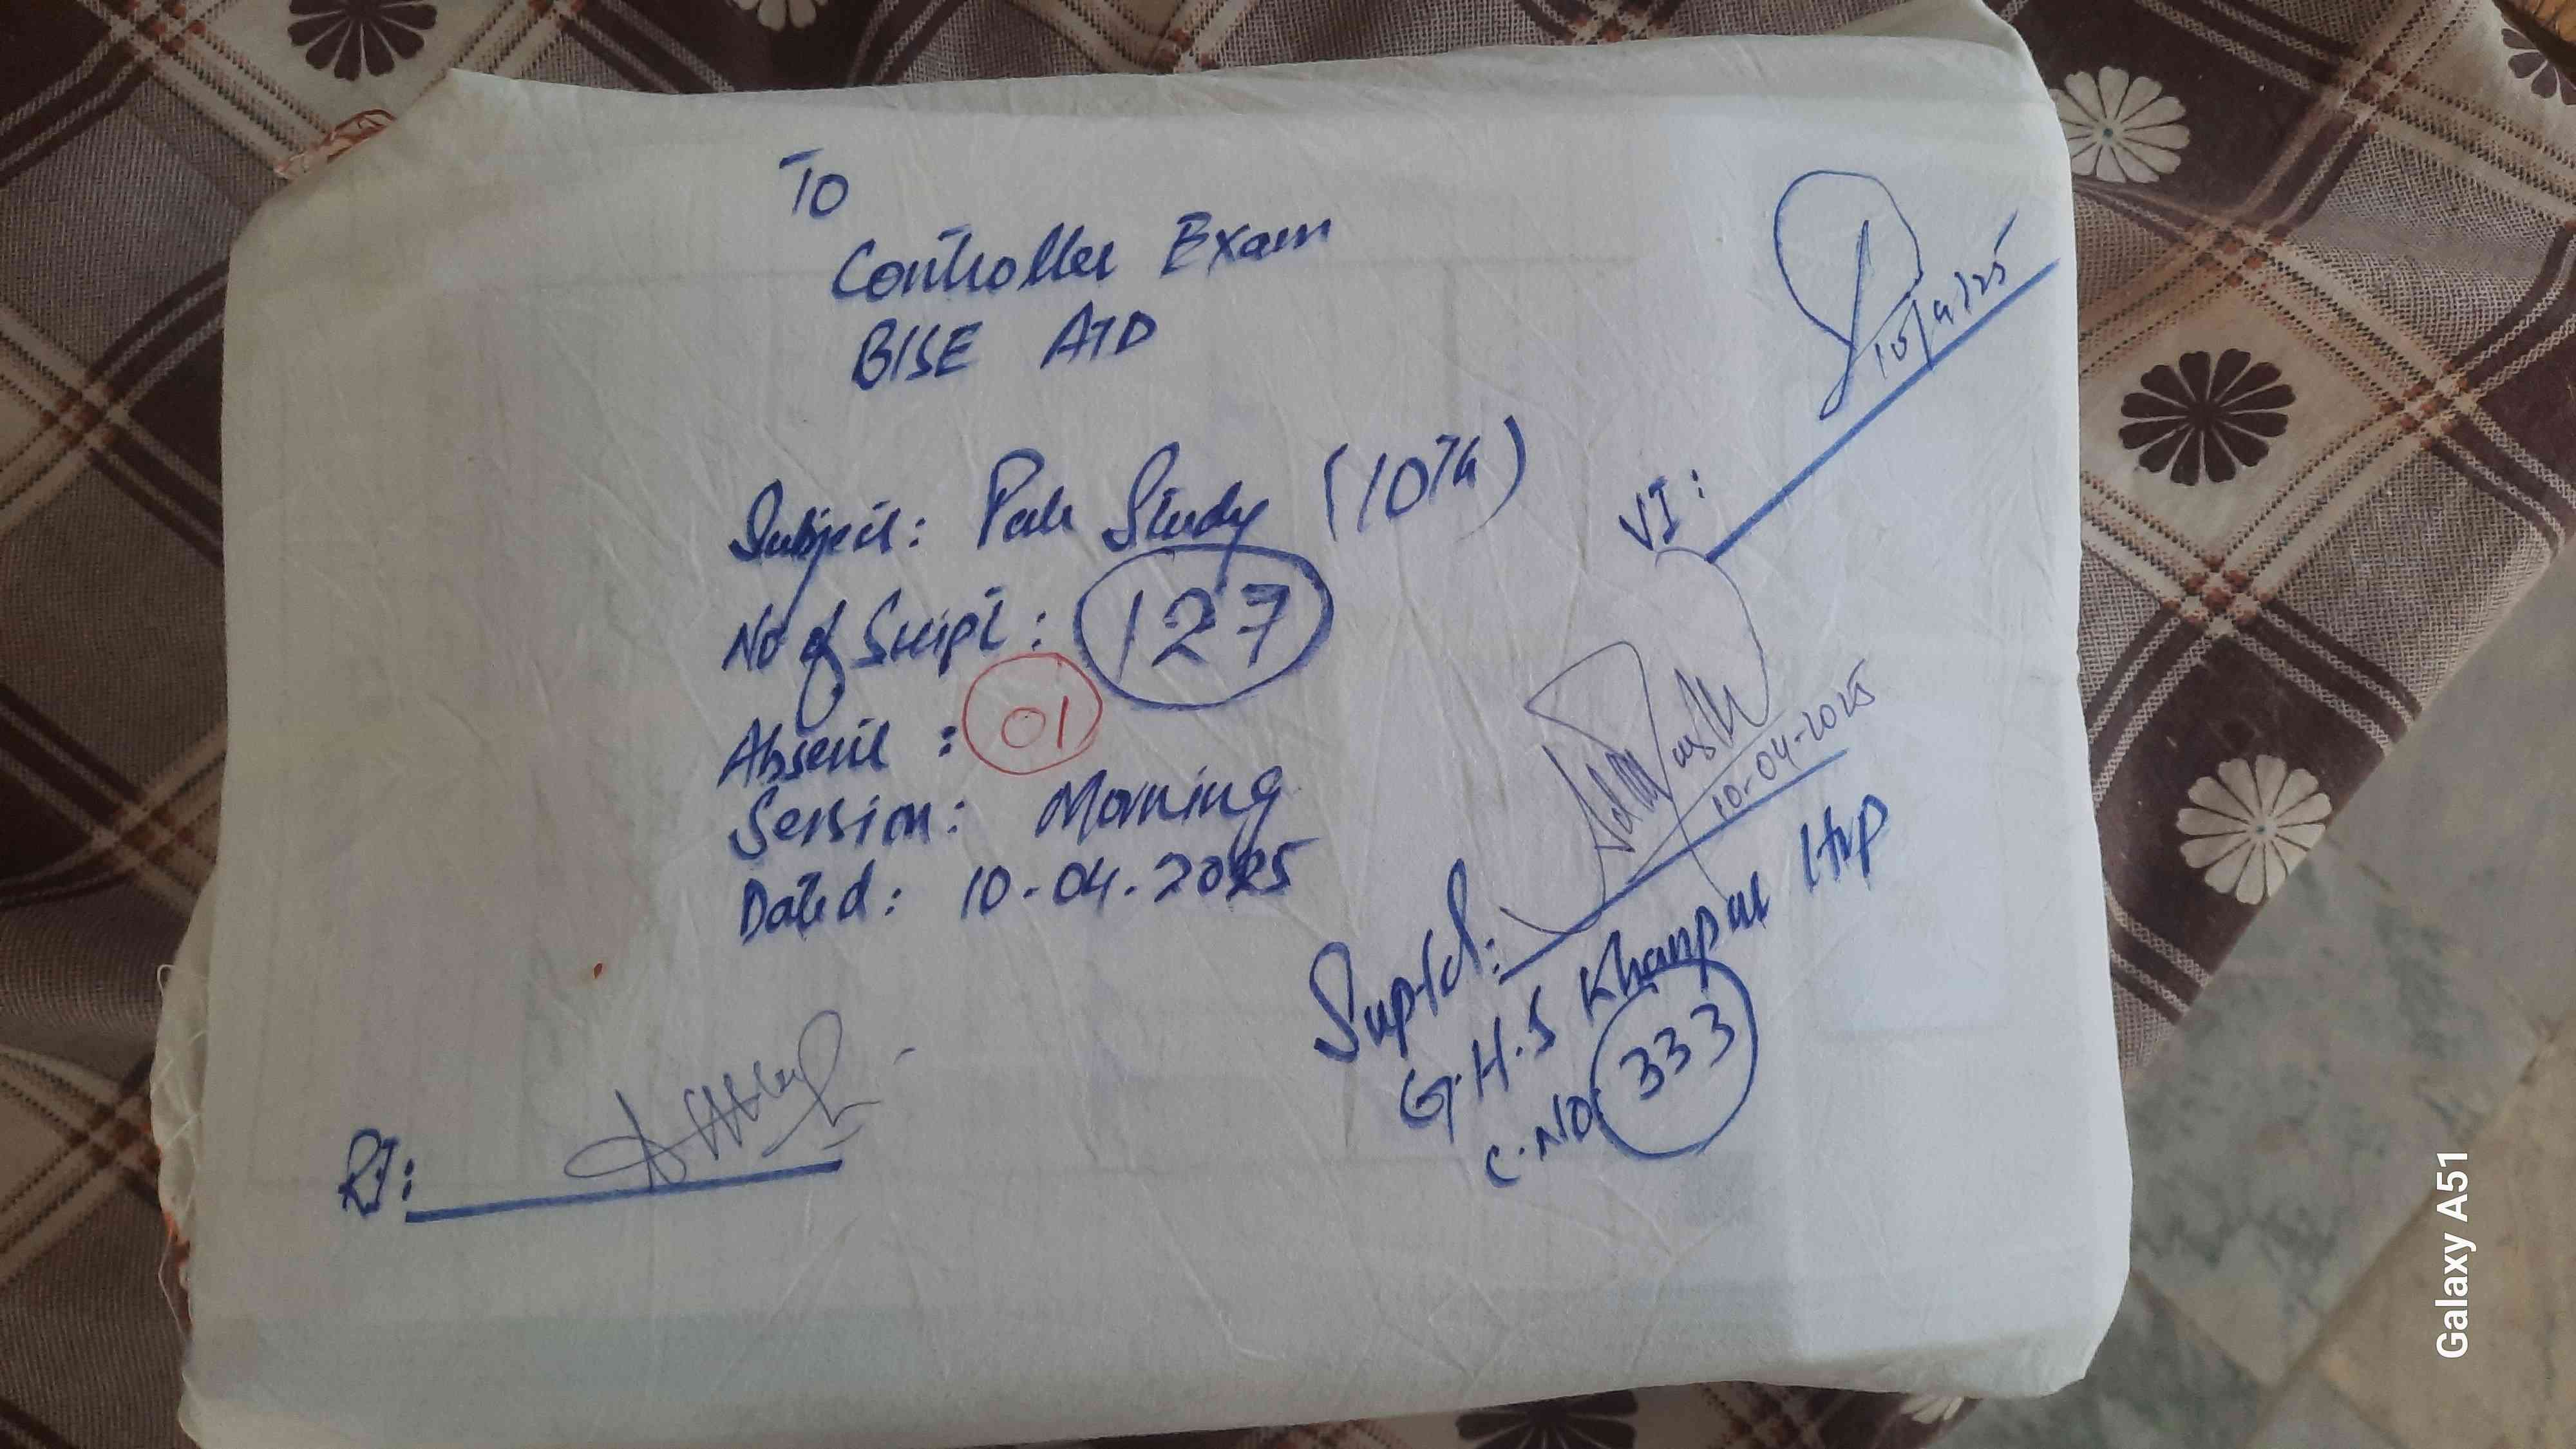 To
Controller Exam
BISE ATD
Subject: Pak Study (10th)
No of Script: 127
Absent: 01
Session: Morning
Dated: 10-04-2025
VI:
10/4/25
10-04-2025
Suptd:
G.H.S Khanpur Hrp
C.NO 333
RI:
Galaxy A51